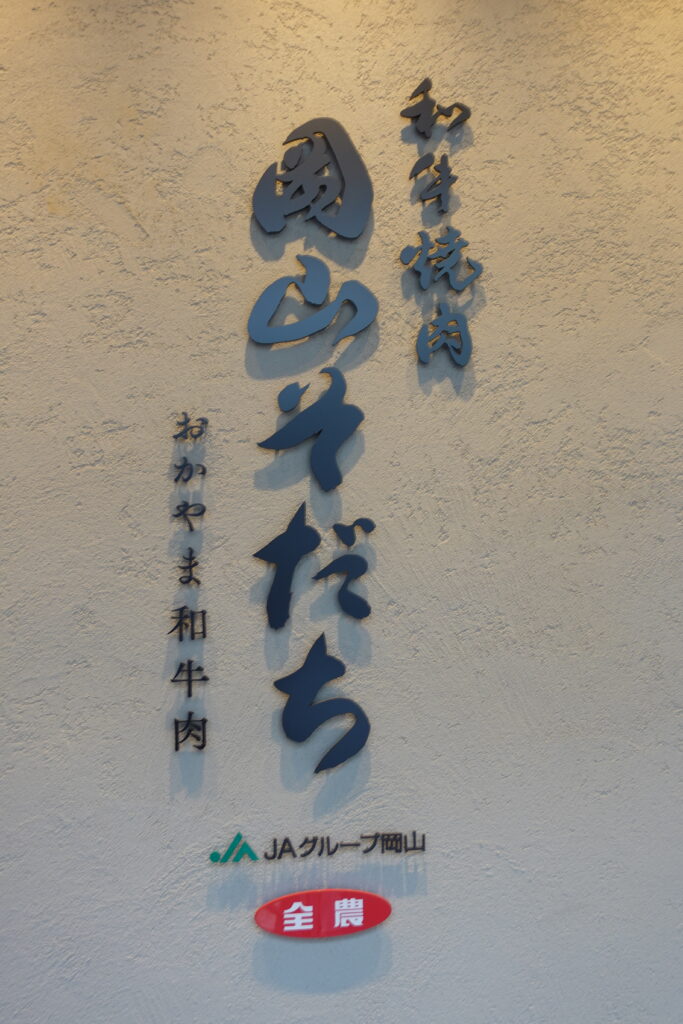 和牛焼肉
岡山そだち
おかやま和牛肉
JA JAグループ岡山
全農